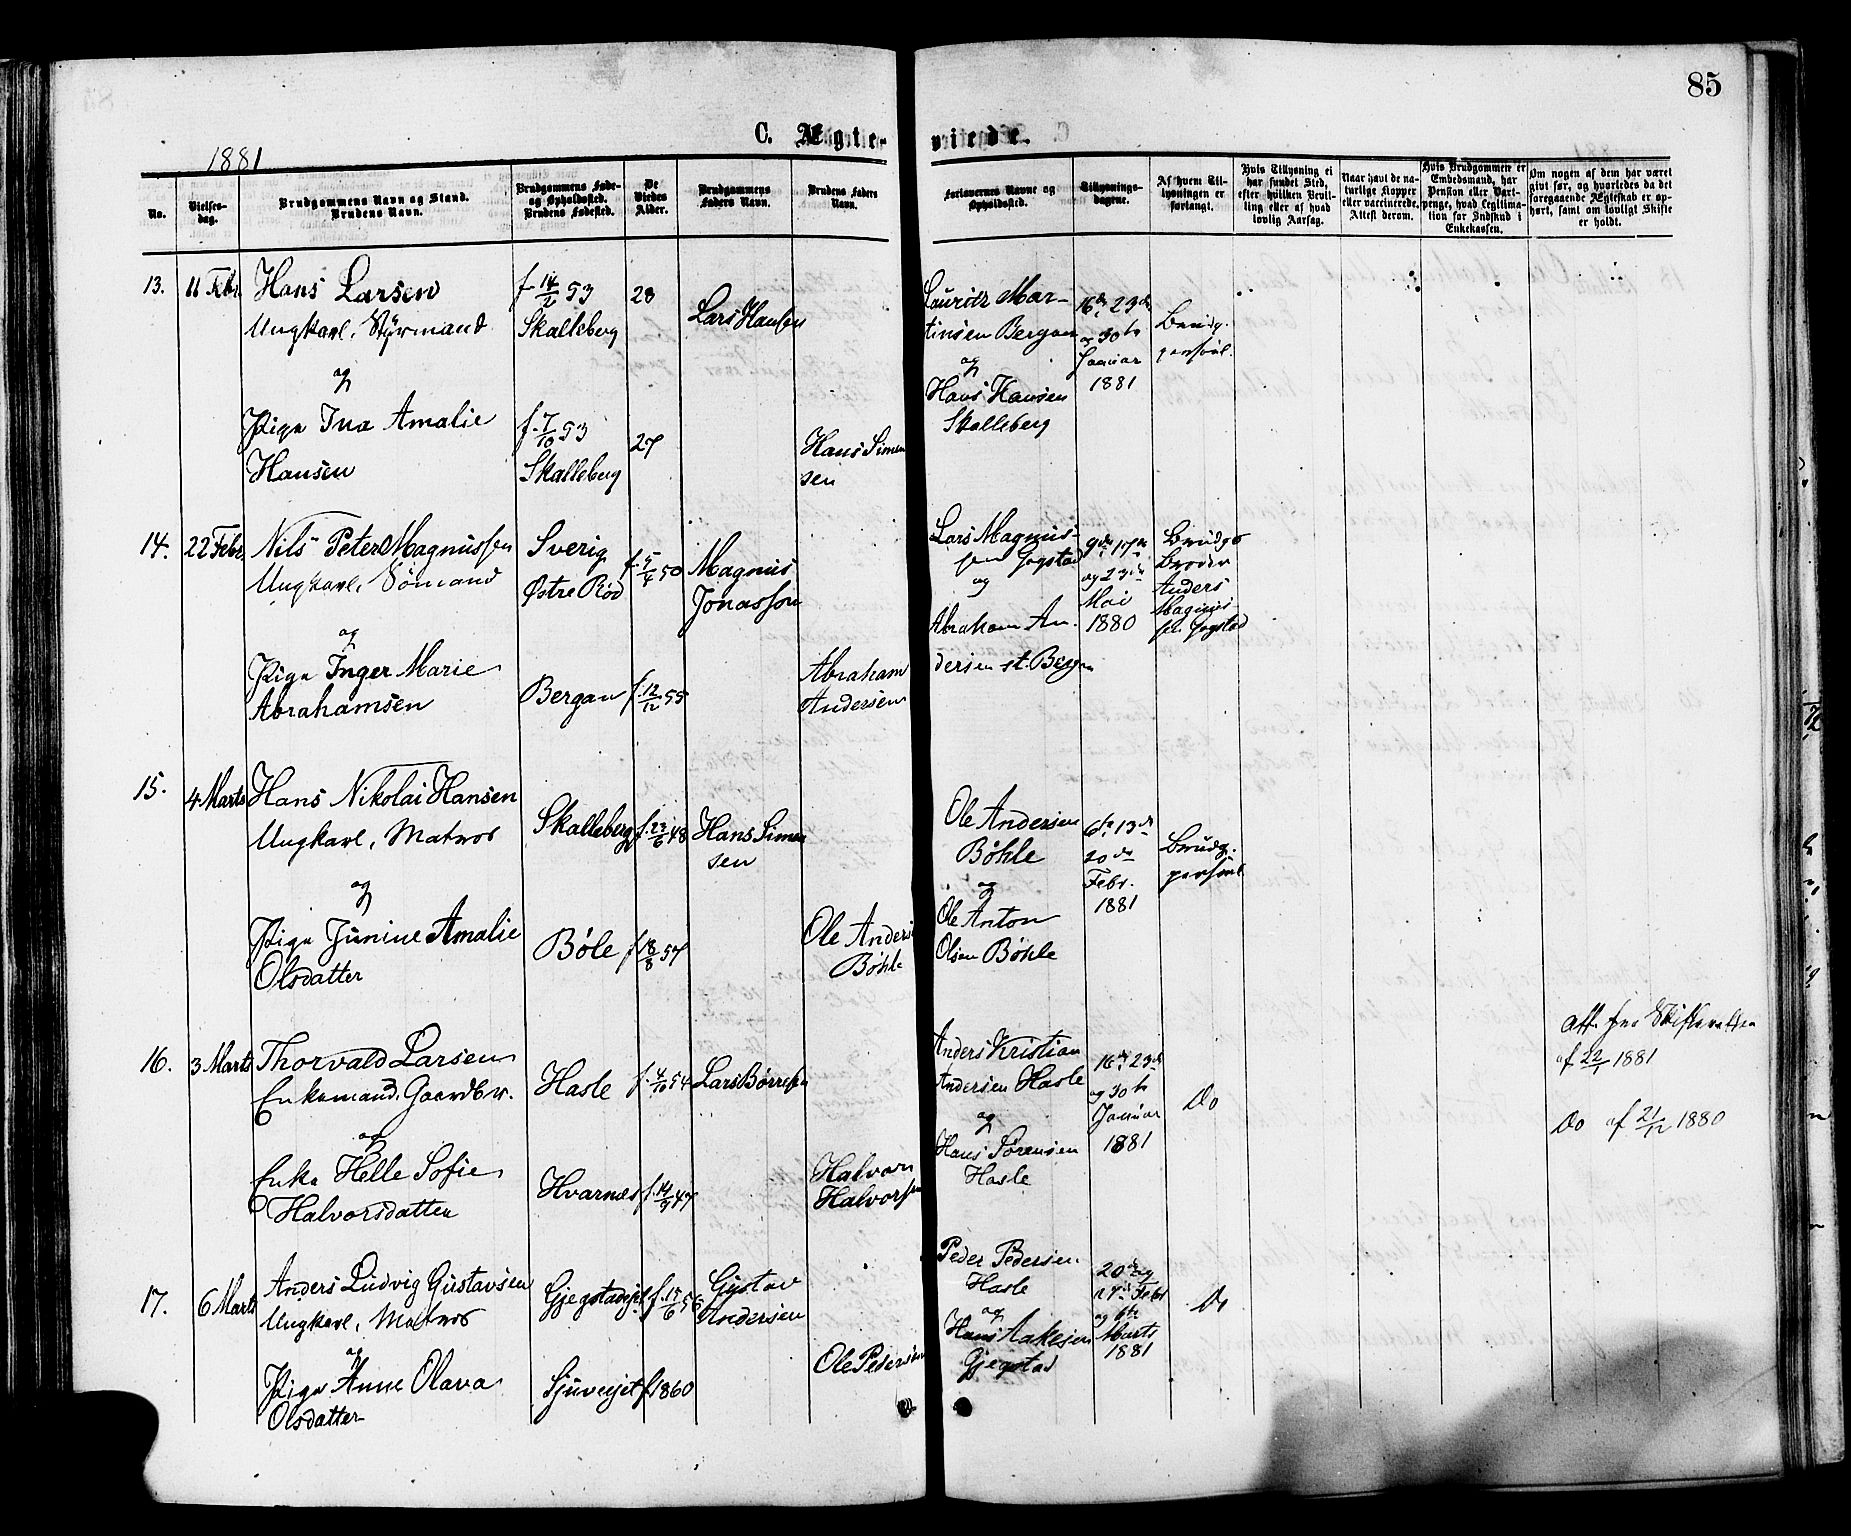 85
C. Ægte-
viede.
1881
No.
Vielses-
dag.
Brudgommens Navn og Stand.
Brudens Navn.
Brudgommens Føde-
og Opholdssted.
Brudens Fødested.
De
Viedes
Alder.
Brudgommens
Faders Navn.
Brudens Faders
Navn.
Forlovernes Navne og
Opholdssted.
Tillysnings-
dagene.
Af hvem Til-
lysningen er
forlangt.
Hvis Tillysning ei
har fundet Sted,
efter hvilken Bevil-
ling eller af hvad
lovlig Aarsag.
Naar havt de na-
turlige Kopper
eller vaccinerede.
Attest derom.
Hvis Brudgommen er
Embedsmand, har
Pension eller Vart-
penge, hvad Legitima-
tion for Indskud i
Enkekassen.
Om nogen af dem har været
givt før, og hvorledes da det
foregaaende Ægteskab er op-
hørt, samt om lovligt Skifte
er holdt.
13.
11 Febr.
Hans Larsen
Ungkarl, Styrmand
og
Pige Ina Amalie
Hansen
Skalleberg
f. 7/10 53
Skalleberg
28
27
Lars Hansen
Hans Simen
sen
Lauritz Mar-
tinsen Bergan
og
Hans Hansen
Skalleberg
16de 23de
og 30te
Januar
1881
Brudg.
personl.
14.
22 Febr.
Nils Peter Magnussen
Ungkarl, Sømand
og
Pige Inger Marie
Abrahamsen
Sverig
Østre Rød
Bergan
f. 5/4 50
f. 12/12 55
Magnus
Jonasson
Abraham
Andersen
Lars Magnus-
sen Jogstad
og
Abraham An-
dersen st. Bergan
9de 17de
og 23de
Mai
1880
Brudgs
Broder
Anders
Magnus-
sen Jogstad
15.
4 Marts
Hans Nikolai Hansen
Ungkarl, Matros
og
Pige Junine Amalie
Olsdatter
Skalleberg
Bøle
f. 23/6 48
f. 18/8 57
Hans Simen
sen
Ole Anders
Bøhle
Ole Andersen
Bøhle
og
Ole Anton
Olsen Bøhle
6te 13de
20de
Febr.
1881
Brudg.
personl
16.
3 Marts
Thorvald Larsen
Enkemand, Gaardbr.
og
Enke Helle Sofie
Halvorsdatter
Hasle
Hvarnes
f. 4/10 54
Lars Børresen
Halvor
Halvorsen
Anders Kristian
Andersen Hasle
og
Hans Sørensen
Hasle
16de 23de
og 30te
Januar
1881
Do
Att. fra Skifteretten
af 22/1 1881
Do af 21/12 1880
17.
6 Marts
Anders Ludvig Gustavsen
Ungkarl, Matros
og
Pige Anne Olava
Olsdatter
Gjegstadejet
f. 1860
Gustav
Andersen
Ole Pedersen
Peder Pedersen
Hasle
og
Hans Aakesen
Gjegstad
20de og
27de Febr
og 6te
Marts
1881
Do